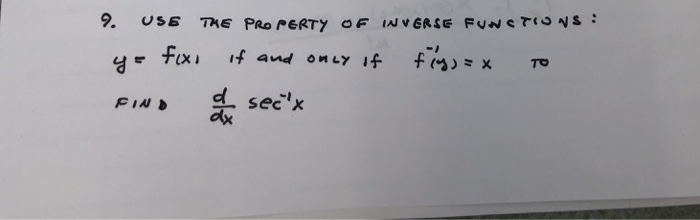 9. USE THE PROPERTY OF INVERSE FUNCTIONS:
y = f(x) if and only if f⁻¹(y) = x TO
FIND d/dx sec⁻¹x